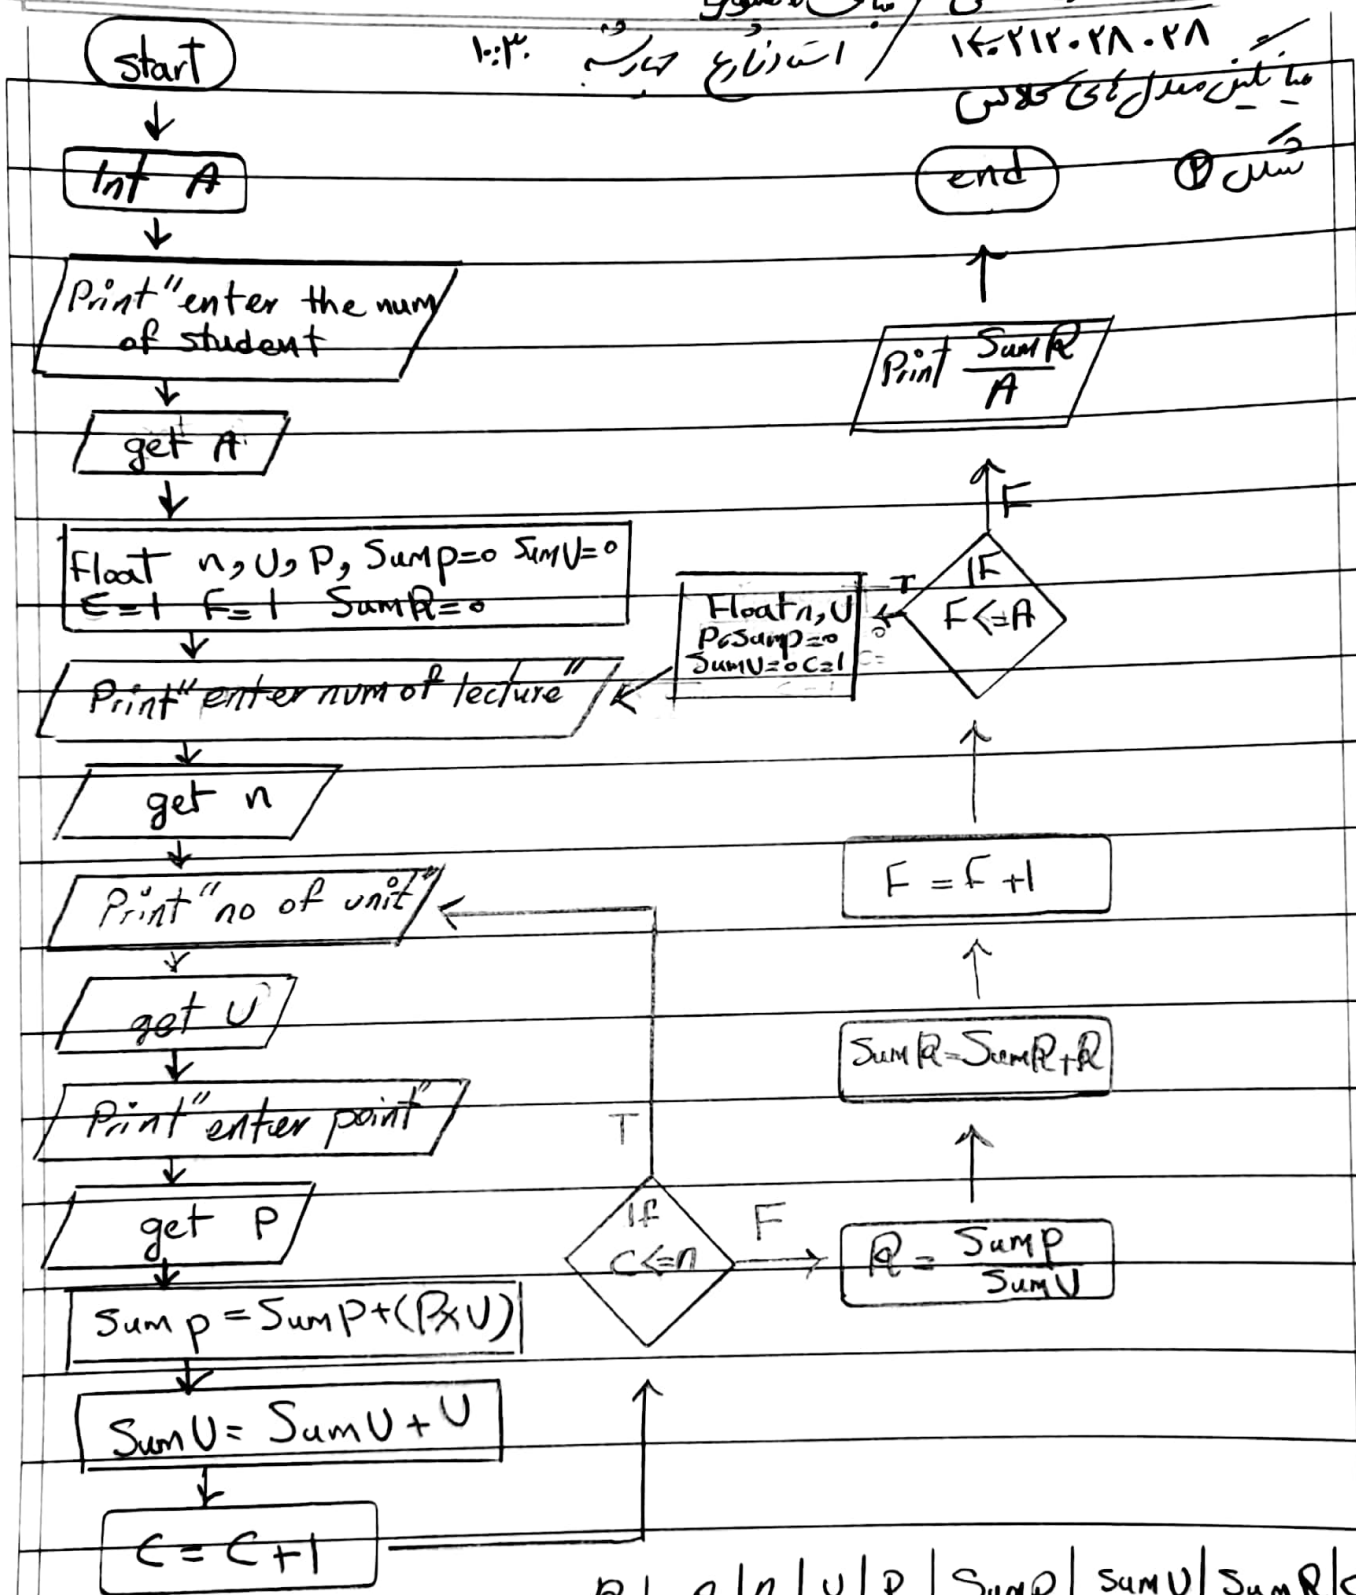 استاد زارع چهارشنبه ۱۰:۳۰
۱۴۰۲۱۲۰۲۸۰۲۸
میانگین معدل های کلاس
شکل ②
start
Int A
Print "enter the num
of student
get A
Float n, U, P, Sump=0 SumU=0
C=1 F=1 SumR=0
Print "enter num of lecture"
get n
Print "no of unit"
get U
Print "enter point"
get P
Sump = Sump+(P×U)
SumU = SumU + U
C = C+1
If
C<=n
T
F
R = SumP
SumU
SumR=SumR+R
F = F+1
IF
F<=A
T
Float n, U
P, Sump=0
SumU=0 C=1
F
Print SumR
A
end
n | U | P | Sump | SumU | SumR